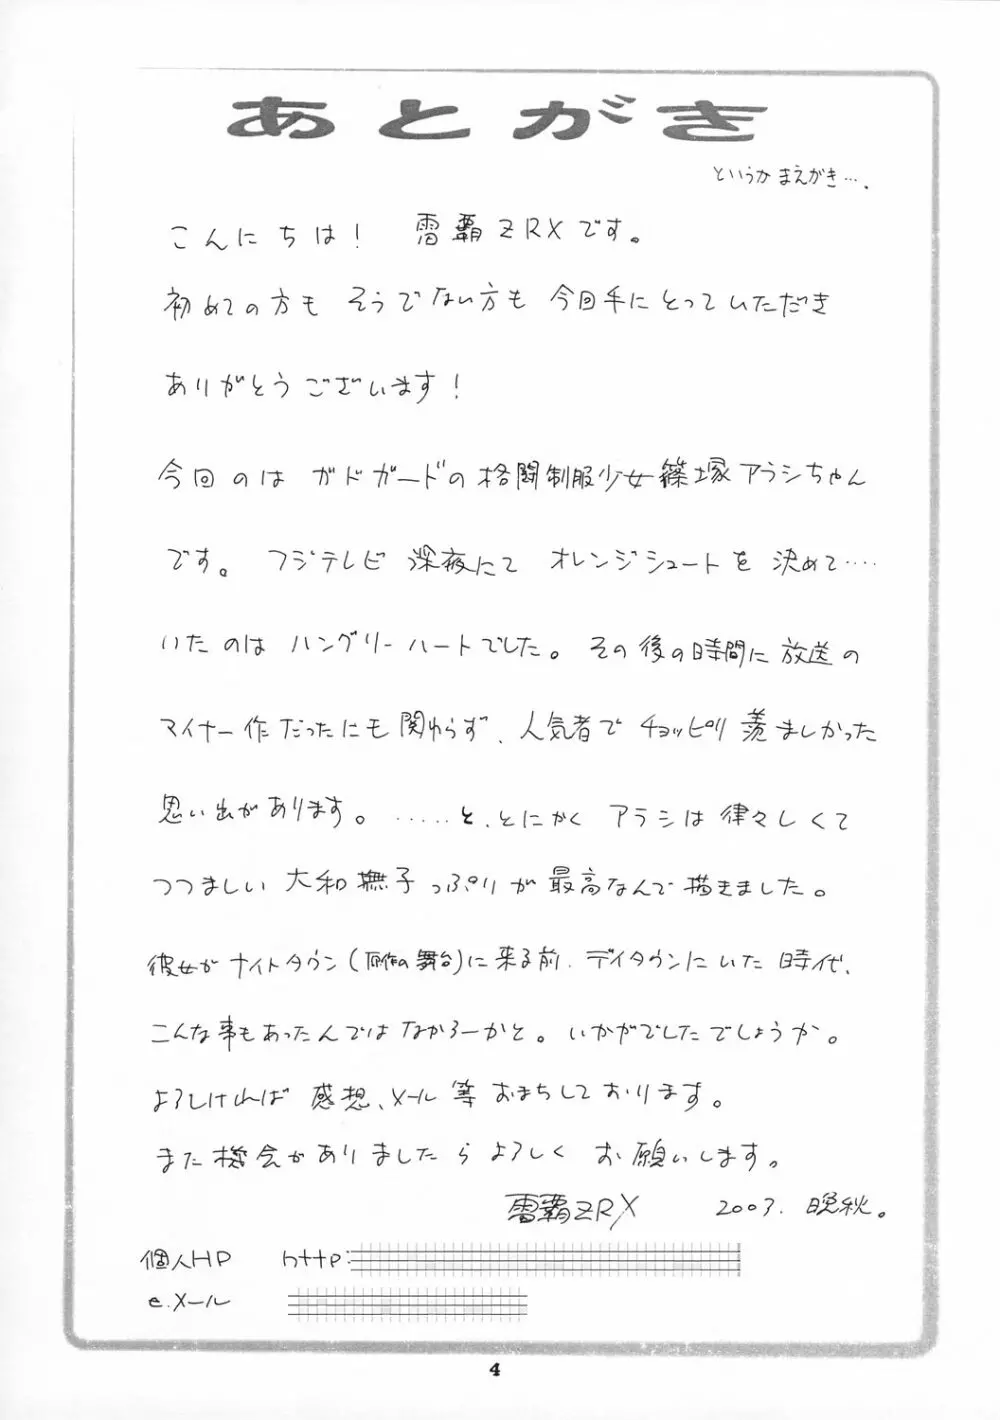 あとがき
というか まえがき….
こんにちは! 雷覇ZRXです。
初めての方も そうでない方も 今回手にとっていただき
ありがとうございます!
今回のは ガドガードの格闘制服少女篠塚アラシちゃん
です。 フジテレビ 深夜にて オレンジシュートを 決めて‥‥
いたのは ハングリーハートでした。 その後の時間に放送の
マイナー作だったにも関わらず、人気者で チョッピリ 羨ましかった
思い出があります。 ‥‥‥と、とにかく アラシは 律々しくて
つつましい 大和撫子っぷりが 最高なんで描きました。
彼女が ナイトタウン(原作の舞台)に来る前、デイタウンにいた 時代、
こんな事もあったんではなかろーかと。 いかがでしたでしょうか。
よろしければ 感想、メール等 おまちしております。
また機会がありましたら よろしく お願いします。
雷覇ZRX 2003. 晩秋。
個人HP http:
e.メール
4